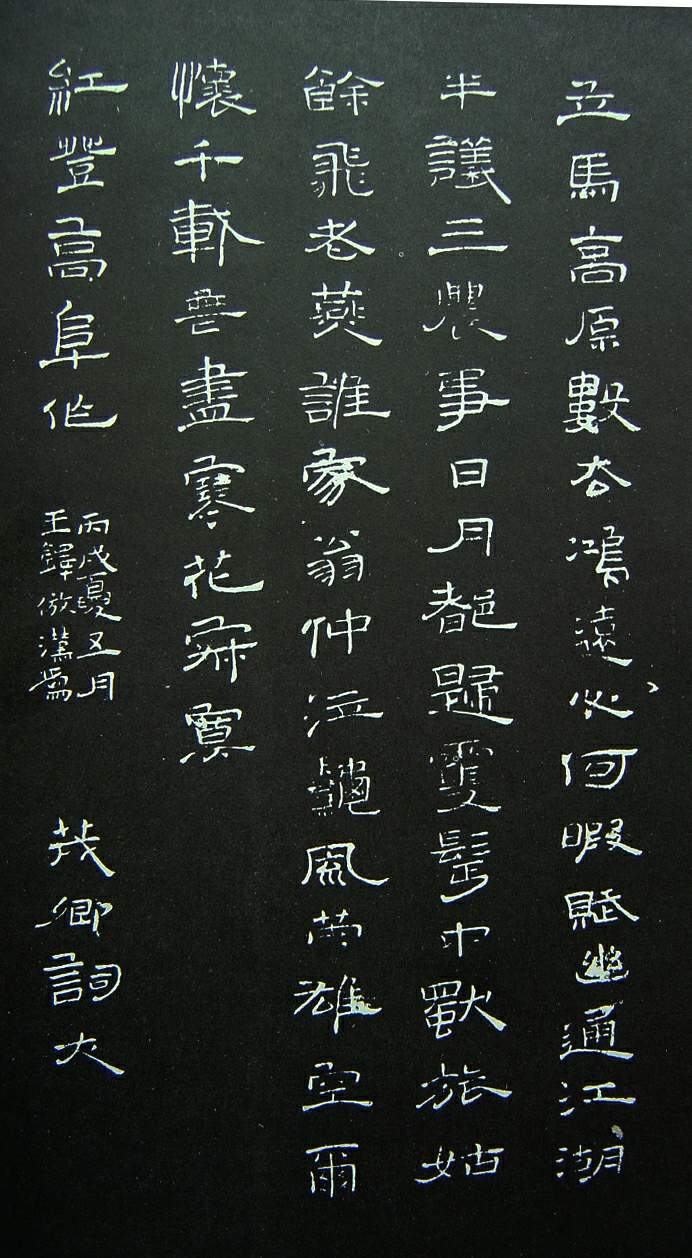 立馬高原數去鴻遠心何暇賦幽通江湖
半議三農事日月都歸雙髩中獸旅姑
餘飛老燕誰家翁仲泣龝風英雄空爾
懷千載無盡寒花寂寞
紅登高阜作
丙戌夏五月
王鐸倣漢為
茂卿詞丈